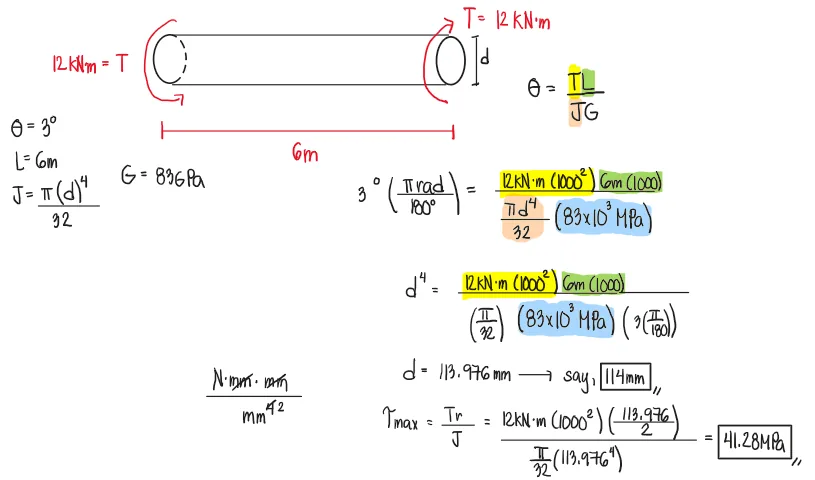 T = 12 kN·m
12 kNm = T
d
6m
θ = TL / JG
θ = 3°
L = 6m
J = π(d)⁴ / 32
G = 83GPa
3° (π rad / 180°) = 12 kN·m (1000²) 6m (1000) / πd⁴/32 (83x10³ MPa)
d⁴ = 12 kN·m (1000²) 6m (1000) / (π/32) (83x10³ MPa) (3(π/180))
N·mm · mm / mm⁴ ²
d = 113.976 mm → say, 114mm
τmax = Tr / J = 12 kN·m (1000²) (113.976 / 2) / π/32 (113.976⁴) = 41.28 MPa